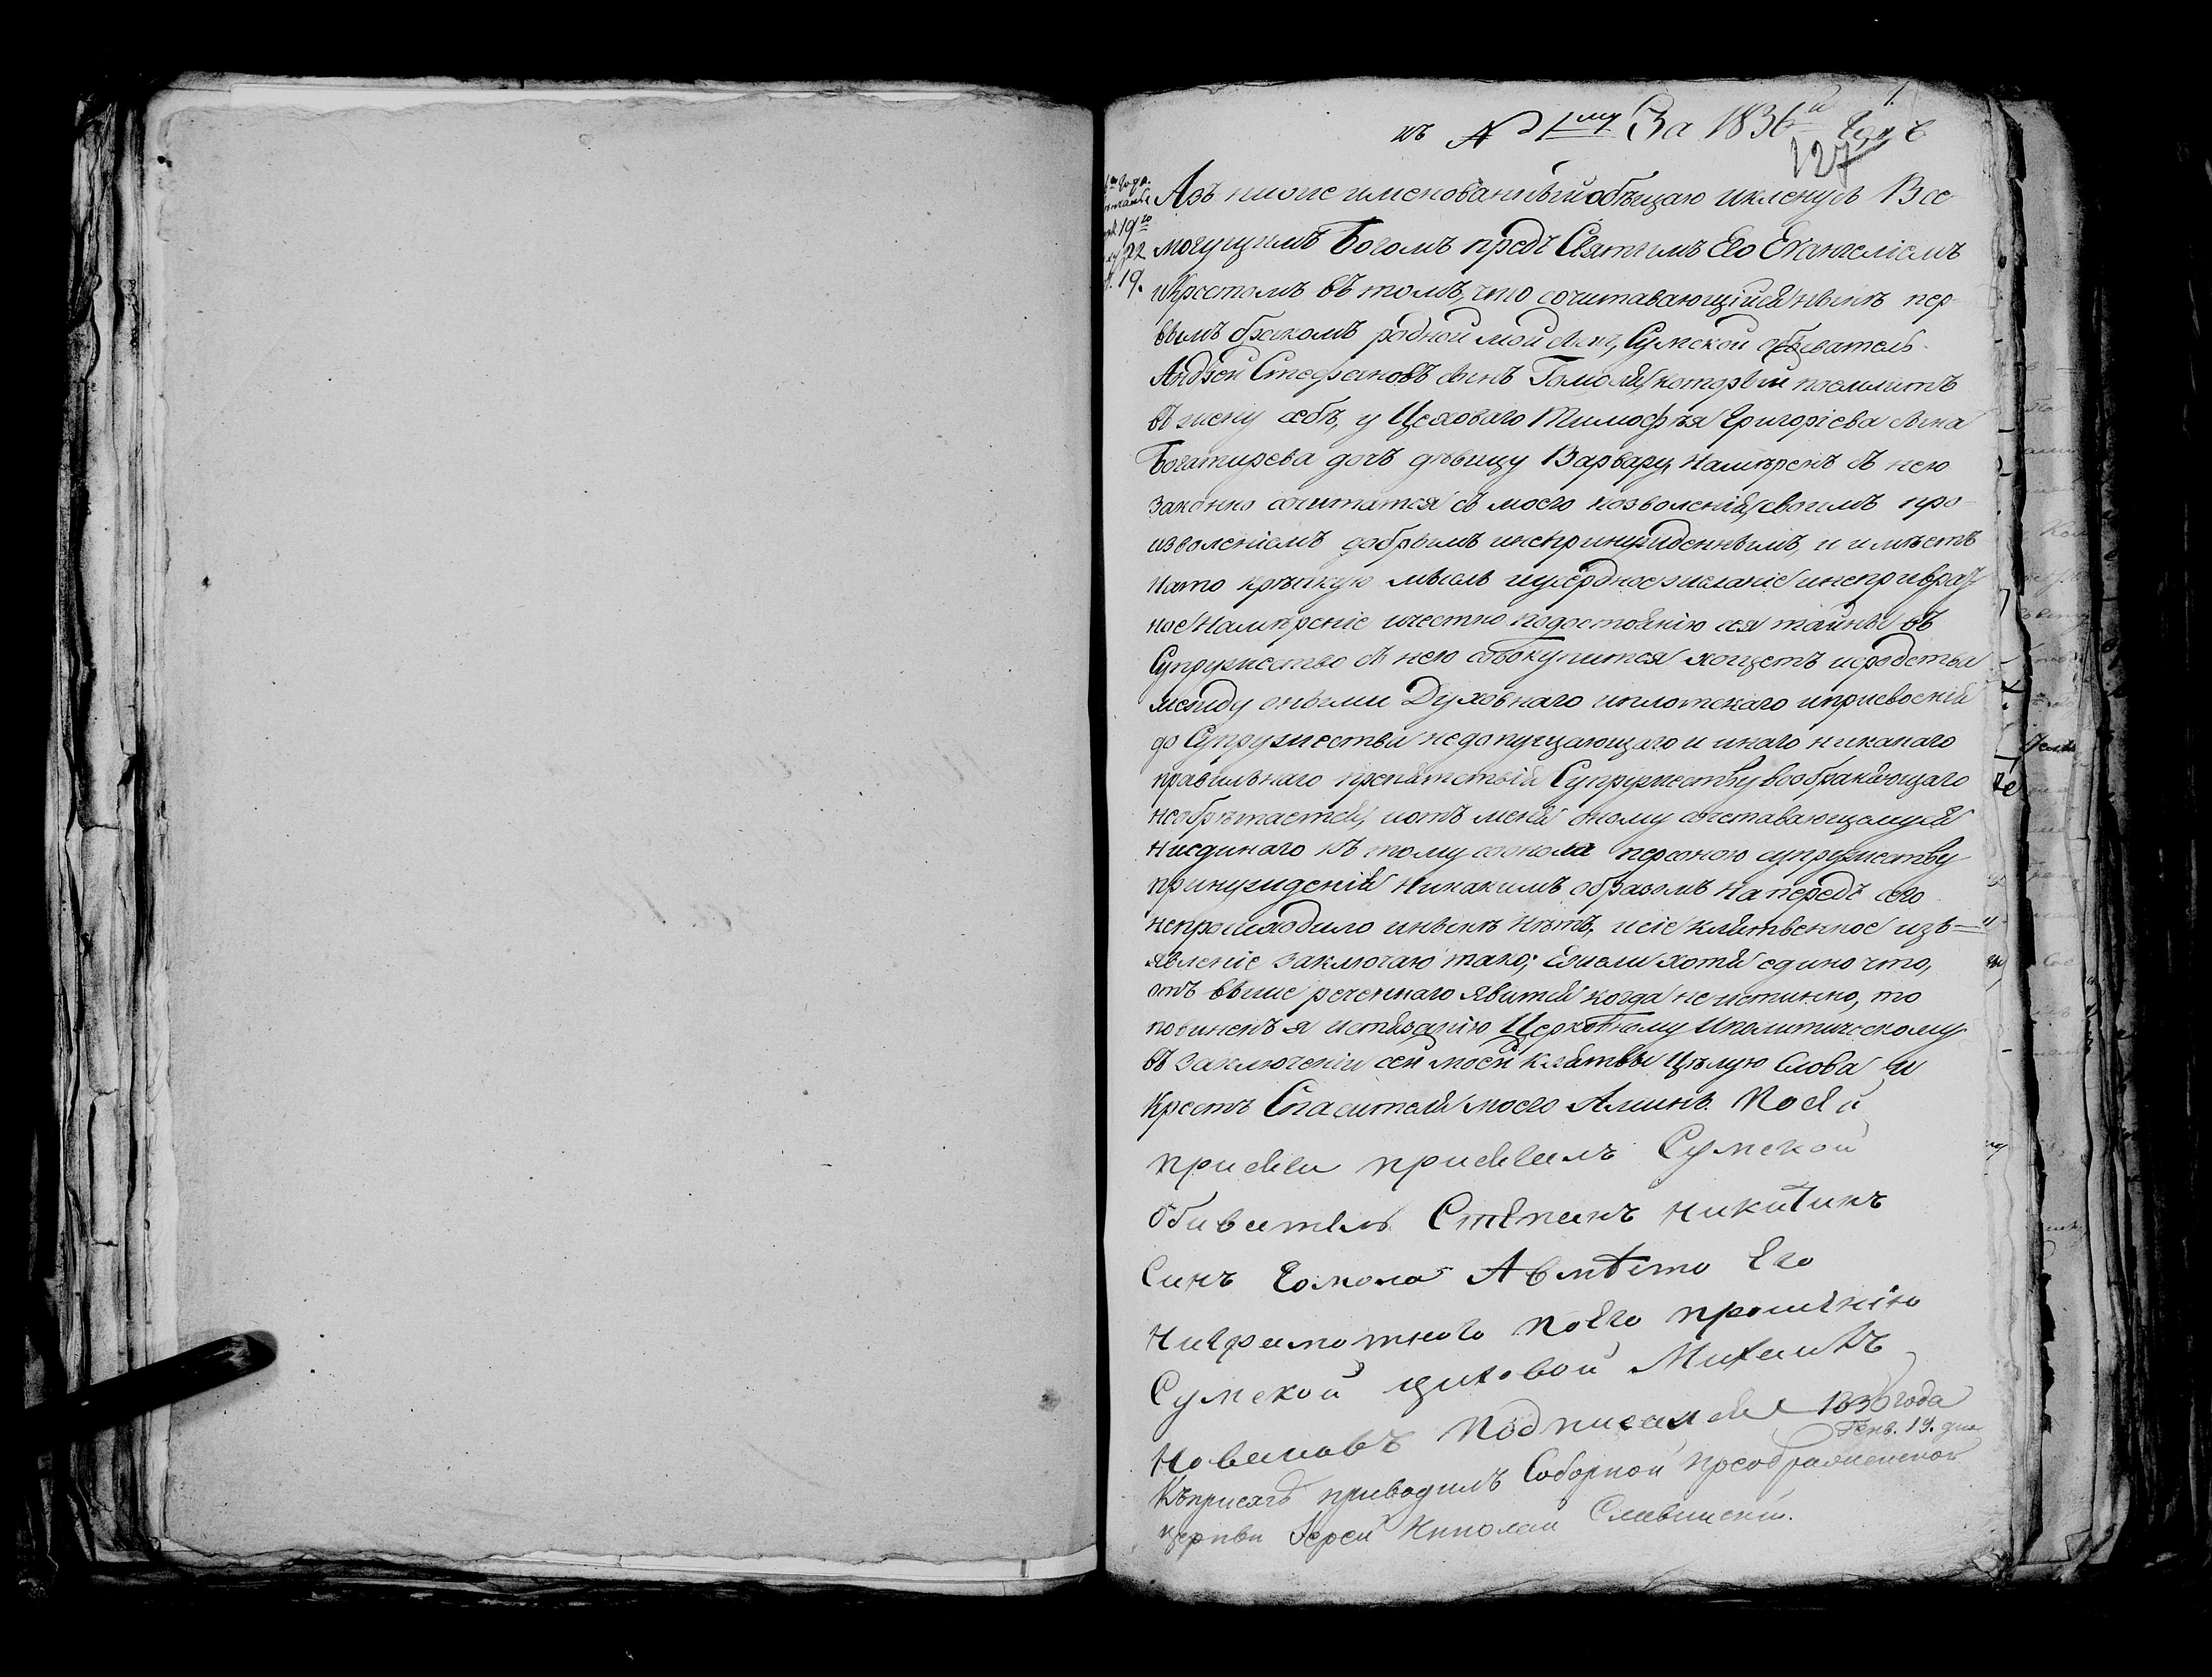 1.
къ № 1му За 1836й годъ
127
го года.
19го
22
19.
Азъ ниже именованный обѣщаю и кленусь Все-
могущимъ Богомъ предъ Святымъ Его Евангелiемъ
и Крестомъ въ томъ, что сочитавающiйся нынѣ пер-
вымъ бракомъ родной мой сынъ, Сумской обыватель
Андрей Стефановъ сынъ Гомоля, который поемлитъ
въ жену себѣ, у Цеховаго Тимофѣя Григорiева сына
Богатирева дочъ дѣвицу Варвару, намѣренъ съ нею
законно сочитатся съ моего позволенiя, своимъ про-
изволенiемъ добрымъ и непринужденнымъ, и имѣетъ
на то крѣпкую мысль и усердное желанiе и непривра-
ное намѣренiе и честно по достоянiю сея тайны въ
Супружество съ нею совокупится хощетъ и сродства
между оными Духовнаго и плотскаго и присвоенiя
до Супружества недопущающаго и инаго никакаго
правильнаго препятствiя Супружеству возбраняющаго
необрѣтается, и отъ меня оному сочетавающемуся
ни единаго къ тому со оною персоною супружеству
принужденiя никакимъ образомъ напередъ сего
непроисходило и нынѣ нѣтъ, и сiе клятвенное изъ=
явленiе заключаю тако; ежели хотя едино что,
отъ выше реченнаго явится когда не истинно, то
повиненъ я истязанiю Церковному и политическому
въ заключенiи сей моей клятвы цѣлую Слова и
Крестъ Спасителя моего Аминь. По сей
присяги присягалъ Сумской
обиватель Степанъ Никитинъ
Синъ Гомола А вмѣсто Его
Ниграмотного по его прошенiю
Сумской циховой Михаилъ
Новаковъ подписался 1836 года
Генв. 19. дня
Къ присягѣ приводилъ Соборной Преображенской
церкви Iерей Николай Славинскiй.